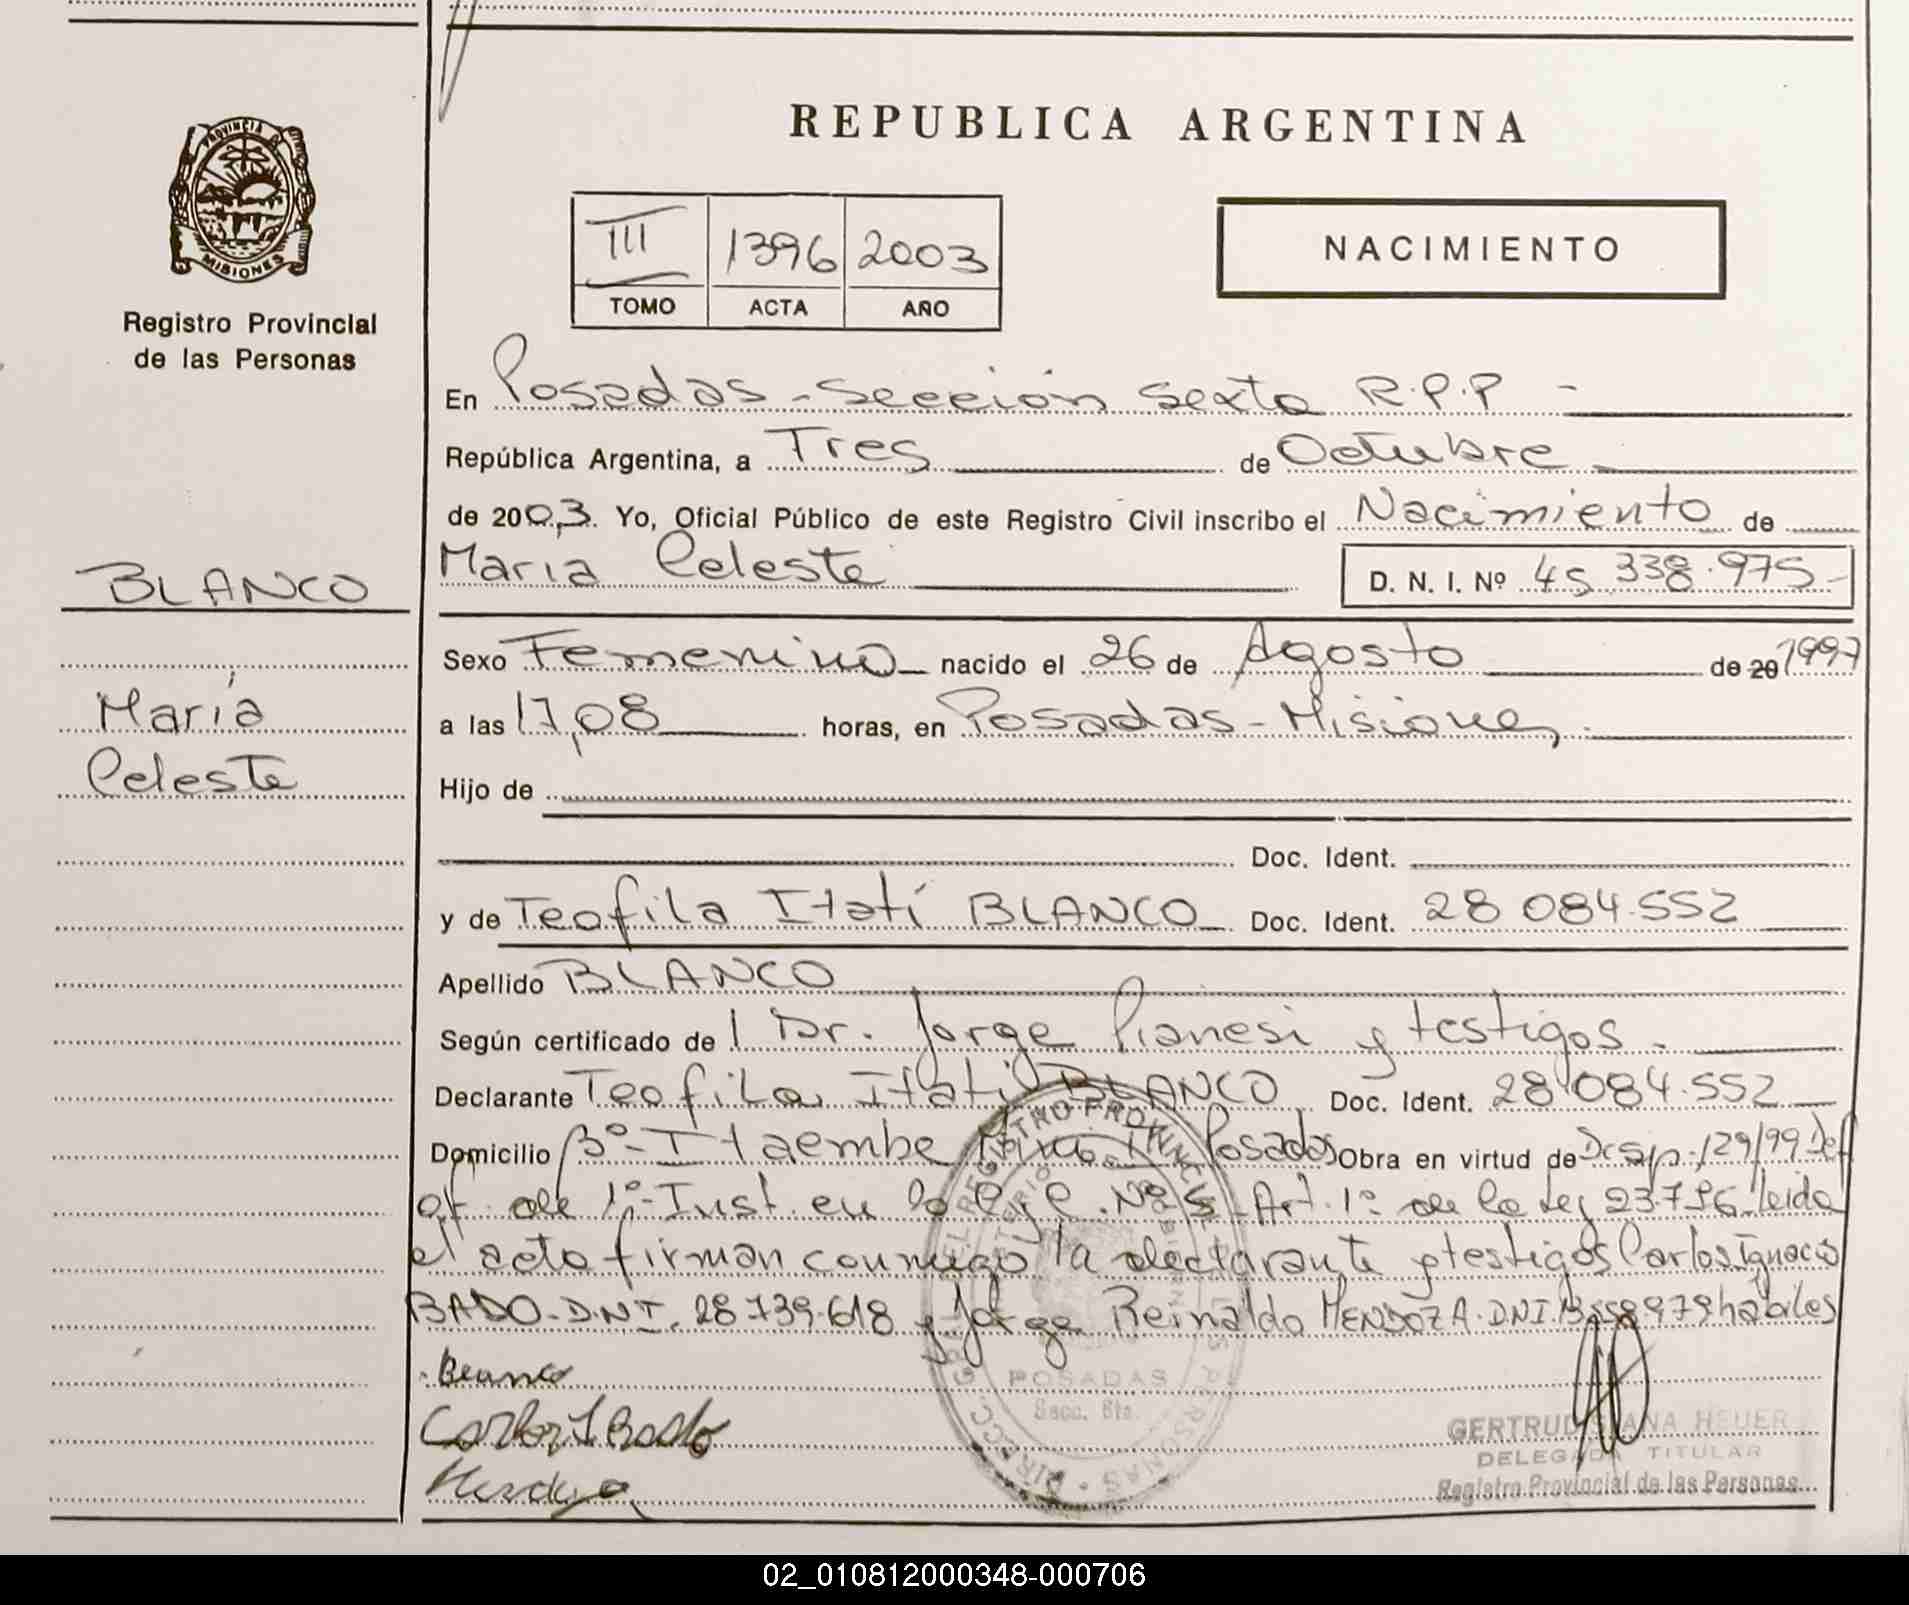 REPUBLICA ARGENTINA
PROVINCIA D
MISIONES
Registro Provincial
de las Personas
III 1396 2003
TOMO ACTA AÑO
NACIMIENTO
En Posadas - Sección Sexta R.P.P -
República Argentina, a Tres de Octubre
de 2003. Yo, Oficial Público de este Registro Civil inscribo el Nacimiento de
Maria Celeste D. N. I. Nº 45 338.975-
BLANCO
María
Celeste
Sexo Femenino nacido el 26 de Agosto de 20 1997
a las 17,08 horas, en Posadas - Misiones
Hijo de
Doc. Ident.
y de Teofila Itatí BLANCO Doc. Ident. 28 084.552
Apellido BLANCO
Según certificado de l Dr. Jorge Pianesi y testigos.
Declarante Teofila Itati BLANCO Doc. Ident. 28 084.552
Domicilio Bº- Itaembe Posadas Obra en virtud de 129/99 Def
of. de 1º Inst. en lo C y C. Nº 5 - Art. 1º de la Ley 23.776. Leida
el acto firman conmigo la declarante y testigos Carlos Ignacio
BADO - D.N.I. 28 739.618 y Jorge Reinaldo MENDOZA. DNI. habiles
Blanco
Carlos I Bado
POSADAS
Secc. 6ta.
GERTRUDIS ANA HEUER
DELEGADA TITULAR
Registro Provincial de las Personas
02_010812000348-000706